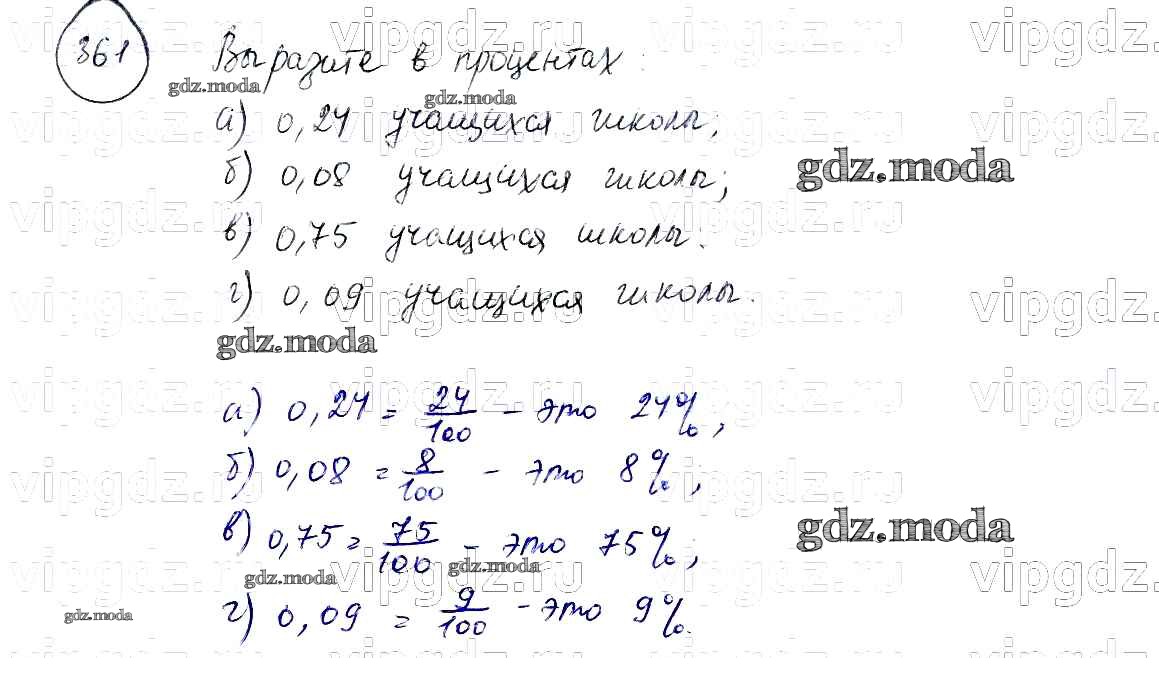 361
Выразите в процентах:
а) 0,24 учащихся школы;
б) 0,08 учащихся школы;
в) 0,75 учащихся школы;
г) 0,09 учащихся школы.
а) 0,24 = 24/100 - это 24%,
б) 0,08 = 8/100 - это 8%,
в) 0,75 = 75/100 - это 75%;
г) 0,09 = 9/100 - это 9%.
gdz.moda
vipgdz.ru